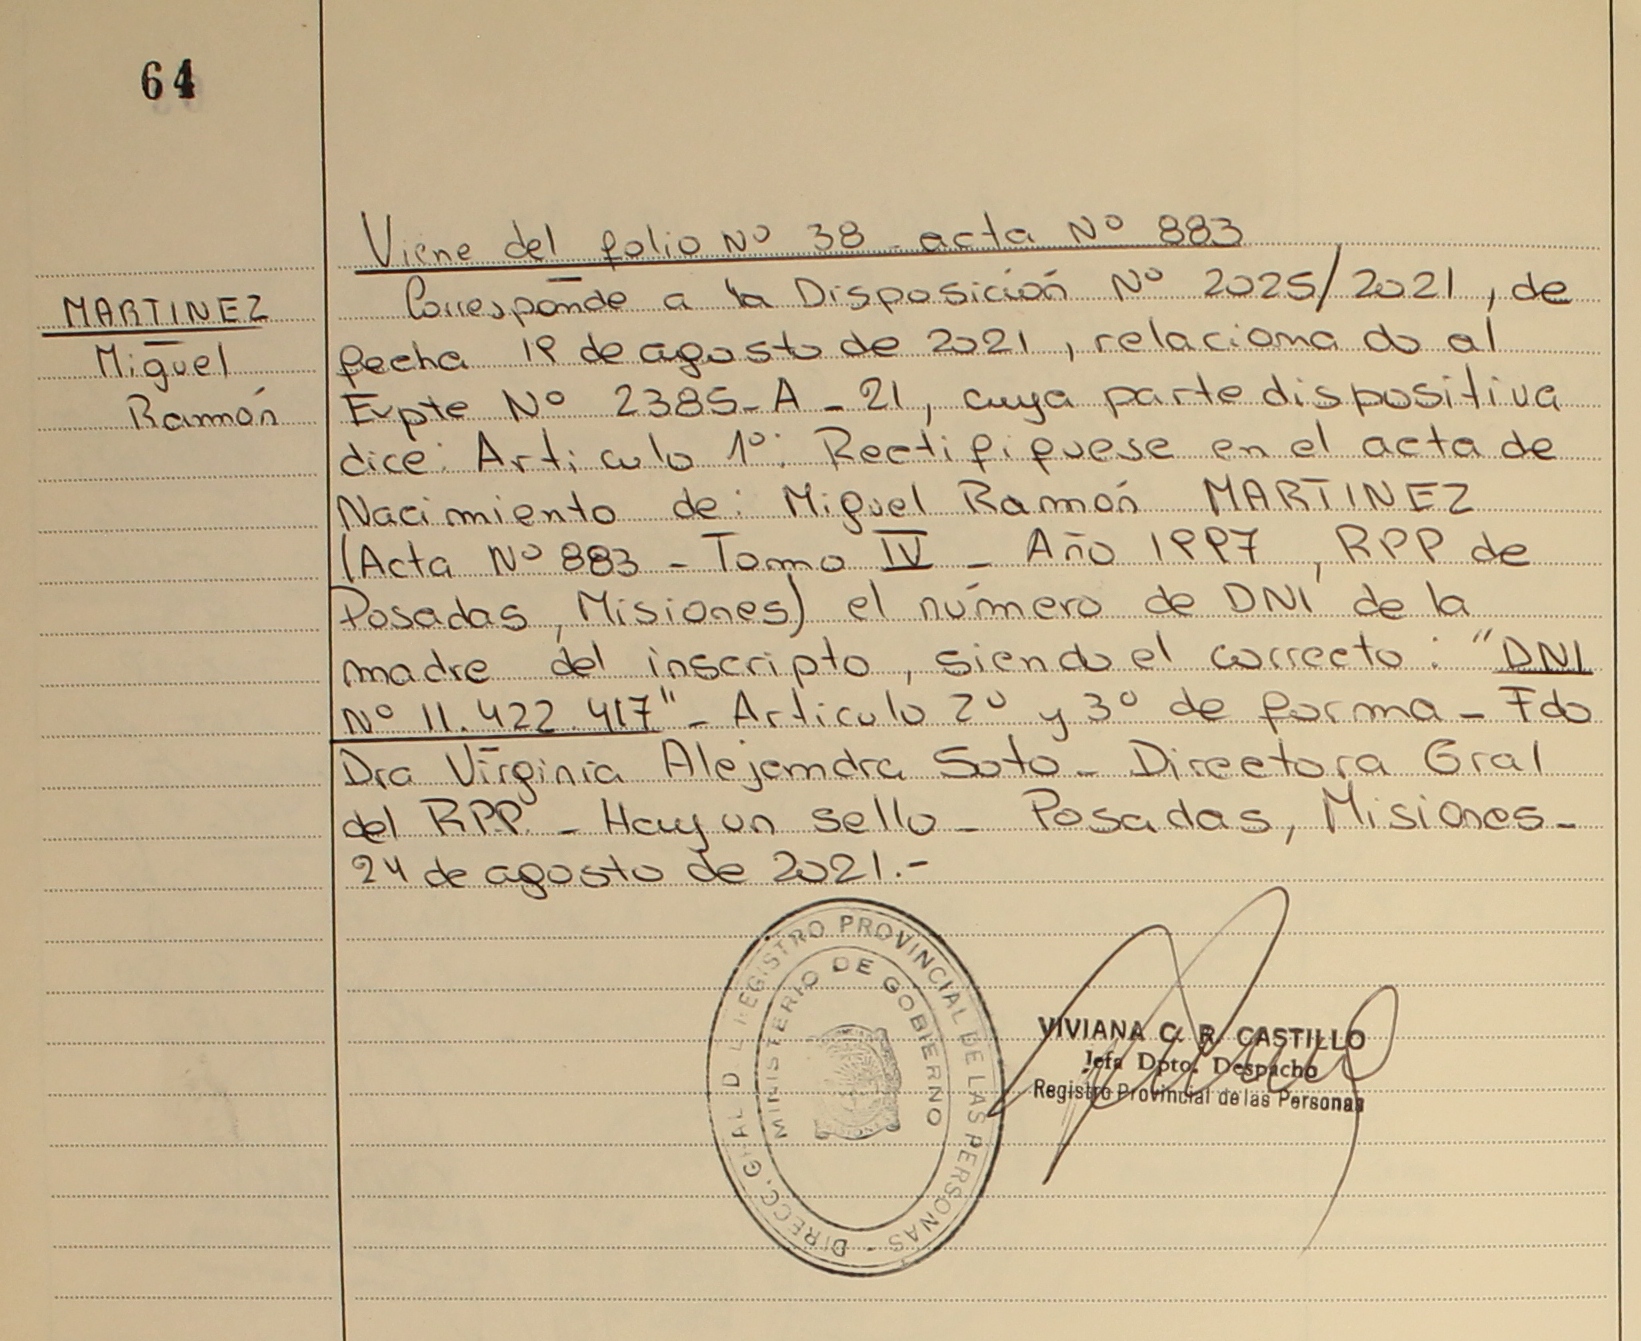 64
Viene del folio Nº 38 - acta Nº 883
MARTINEZ
Miguel
Ramón
Corresponde a la Disposición Nº 2025/2021, de
fecha 19 de agosto de 2021, relacionado al
Expte Nº 2385-A-21, cuya parte dispositiva
dice: Articulo 1º: Rectifiquese en el acta de
Nacimiento de: Miguel Ramón MARTINEZ
(Acta Nº 883 - Tomo IV - Año 1997, RPP de
Posadas, Misiones) el número de DNI de la
madre del inscripto, siendo el correcto: "DNI
Nº 11.422.417" - Articulo 2º y 3º de forma - Fdo
Dra Virginia Alejandra Soto - Directora Gral
del RPP - Hay un sello - Posadas, Misiones -
24 de agosto de 2021.-
DIRECC. GRAL D REGISTRO PROVINCIAL DE LAS PERSONAS -
MINISTERIO DE GOBIERNO
VIVIANA C. R. CASTILLO
Jefa Dpto. Despacho
Registro Provincial de las Personas